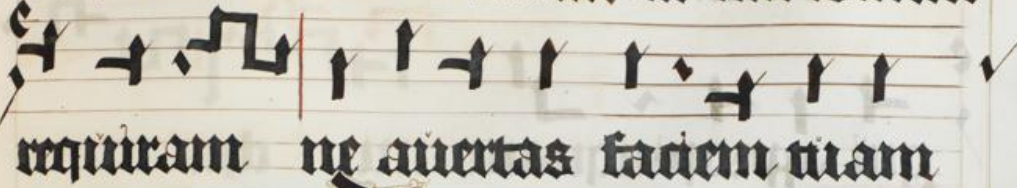 requiram ne auertas faciem tuam